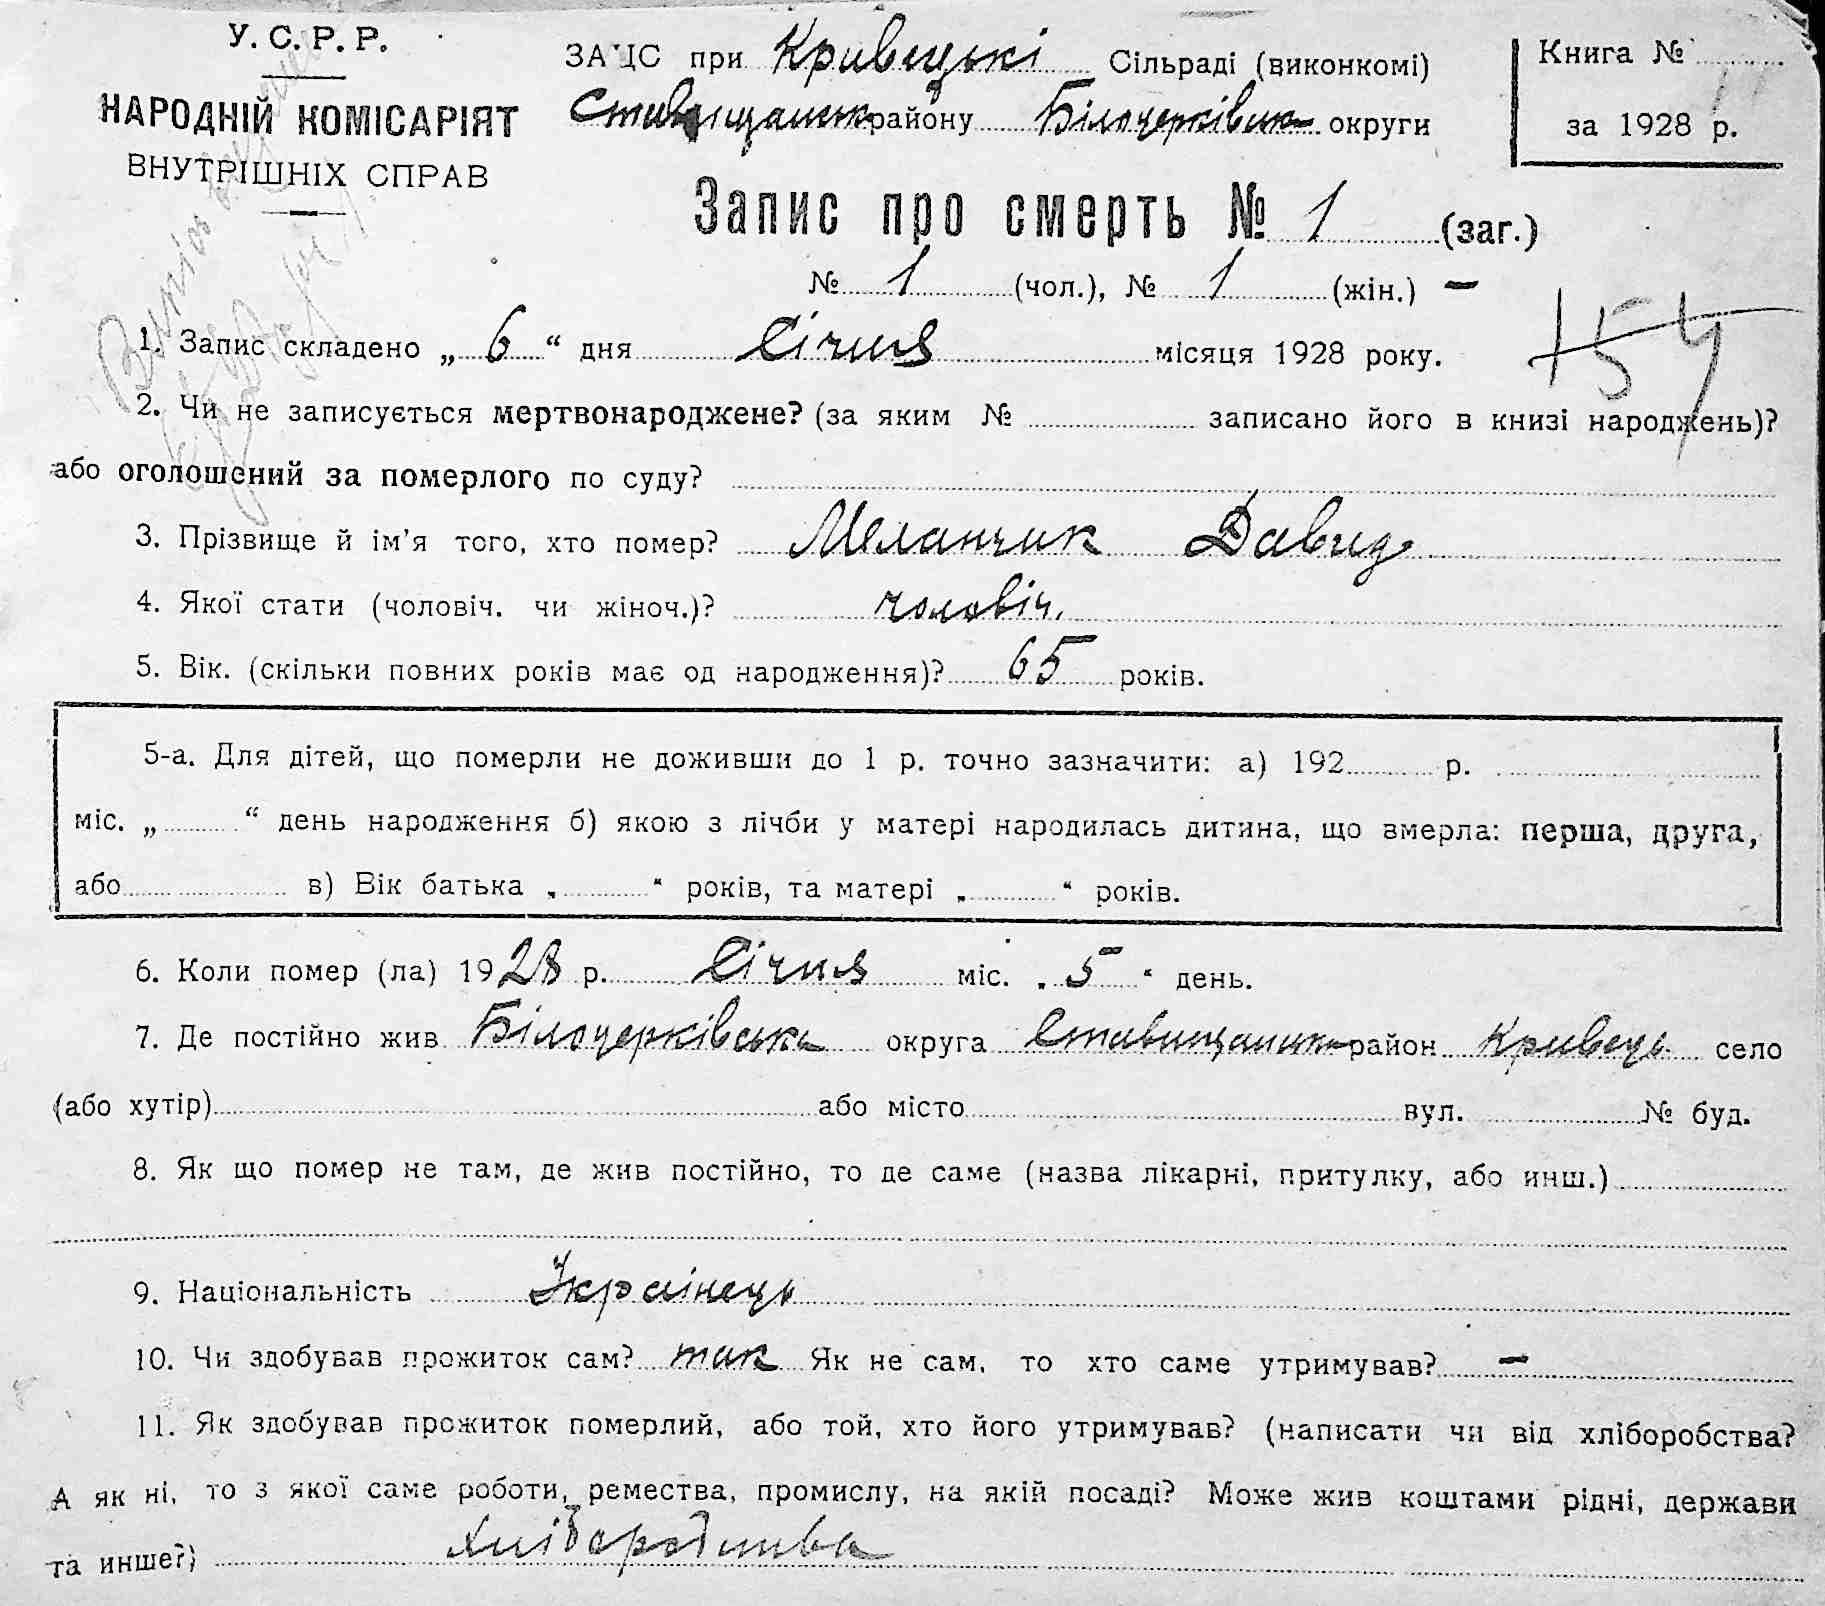 У. С. Р. Р.
НАРОДНІЙ КОМІСАРІЯТ
ВНУТРІШНІХ СПРАВ
ЗАГС при Кривецькі Сільраді (виконкомі)
Ставищанськ району Білоцерківськ округи
Книга №
за 1928 р.
Запис про смерть № 1 (заг.)
№ 1 (чол.), № 1 (жін.) —
154
1. Запис складено „ 6 “ дня Січня місяця 1928 року.
2. Чи не записується мертвонароджене? (за яким № записано його в книзі народжень)?
або оголошений за померлого по суду?
3. Прізвище й ім’я того, хто помер? Меланчик Давид
4. Якої стати (чоловіч. чи жіноч.)? чоловіч.
5. Вік. (скільки повних років має од народження)? 65 років.
5-а. Для дітей, що померли не доживши до 1 р. точно зазначити: а) 192 р.
міс. „ “ день народження б) якою з лічби у матері народилась дитина, що вмерла: перша, друга,
або в) Вік батька „ “ років, та матері „ “ років.
6. Коли помер (ла) 1928 р. Січня міс. „ 5 “ день.
7. Де постійно жив Білоцерківська округа Ставищанськ район Кривець село
(або хутір) або місто вул. № буд.
8. Як що помер не там, де жив постійно, то де саме (назва лікарні, притулку, або инш.)
9. Національність Українець
10. Чи здобував прожиток сам? так Як не сам, то хто саме утримував? —
11. Як здобував прожиток померлий, або той, хто його утримував? (написати чи від хліборобства?
А як ні, то з якої саме роботи, ремества, промислу, на якій посаді? Може жив коштами рідні, держави
та инше?) Хліборобства